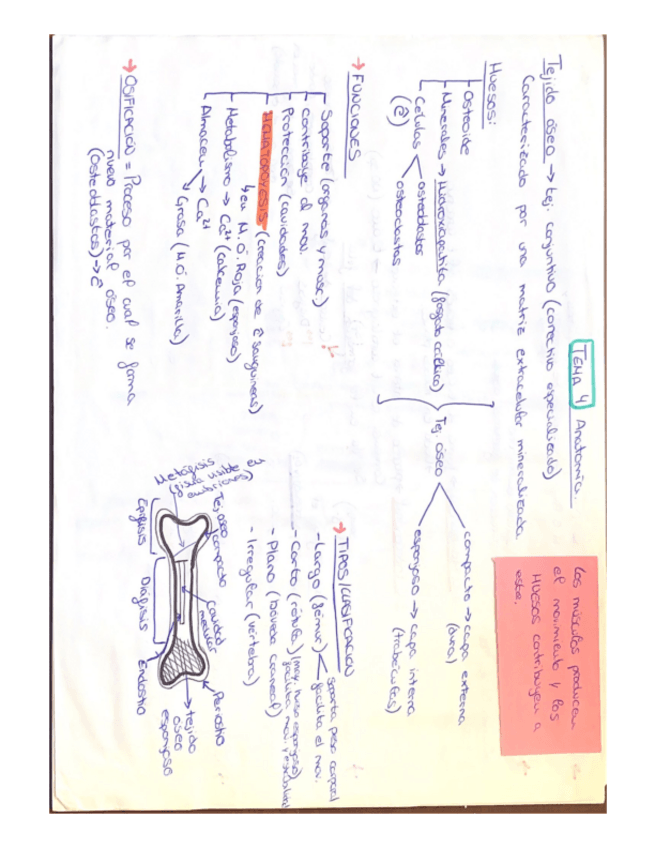 TEMA 4 Anatomía.
Tejido óseo → tej. conjuntivo (conectivo especializado)
Caracterizado por una matriz extracelular mineralizada
Los músculos producen
el movimiento y los
HUESOS contribuyen a
este.
HUESOS:
Osteoide
Minerales → Hidroxiapatita (fosfato cálcico)
Células
(c̄)
osteoblastos
osteoclastos
Tej. óseo
compacto → capa externa
(dura)
esponjoso → capa interna
(trabéculas)
→ FUNCIONES
Soporte (órganos y musc.)
Contribuye al mov.
Protección (cavidades)
HEMATOPOYESIS (creación de c̄ sanguíneas)
↳ en M.Ó. Roja (esponjoso)
Metabolismo → Ca²⁺ (calcemia)
Almacen → Ca²⁺
Grasa (M.Ó. Amarilla)
→ TIPOS/CLASIFICACIÓN
- Largo (fémur)
soporta peso corporal
facilita el mov.
- Corto (rótula) (may. hueso esponjoso)
facilita mov. y estabilidad
- Plano (bóveda craneal)
- Irregular (vértebra)
→ OSIFICACIÓN = Proceso por el cual se forma
nuevo material óseo.
(Osteoblastos) → c̄
Metáfisis
(física visible en
embriones)
Tej. óseo
compacto
Cavidad
medular
Periostio
Epífisis
Diáfisis
Endostio
tejido
óseo
esponjoso